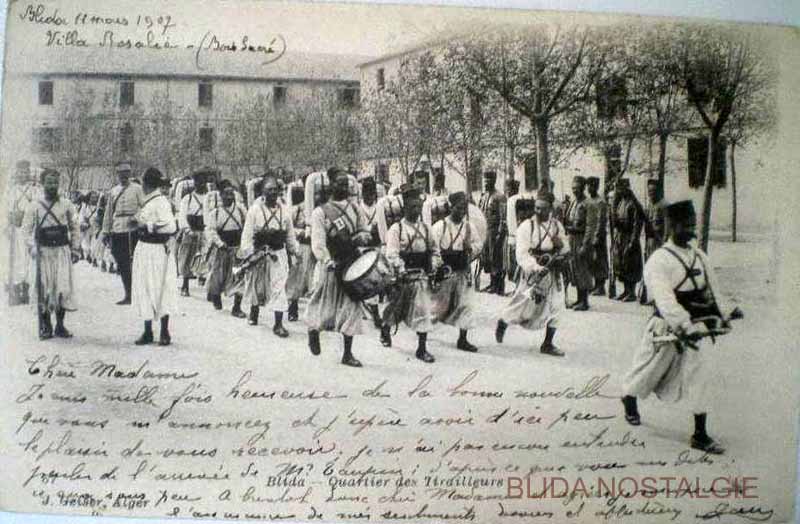 Blida 11 mars 1907
Villa Rosalie - (Bois Sacré)
Chère Madame
Je suis mille fois heureuse de la bonne nouvelle
que vous m'annoncez et j'espère avoir d'ici peu
le plaisir de vous recevoir. Je n'ai pas encore entendu
parler de l'arrivée de Mr. d'après ce que vous me dites
Blida - Quartier des Tirailleurs
BLIDA NOSTALGIE
sous peu A bientôt donc chère Madame
J. Geiser, Alger
l'assurance de mes sentiments